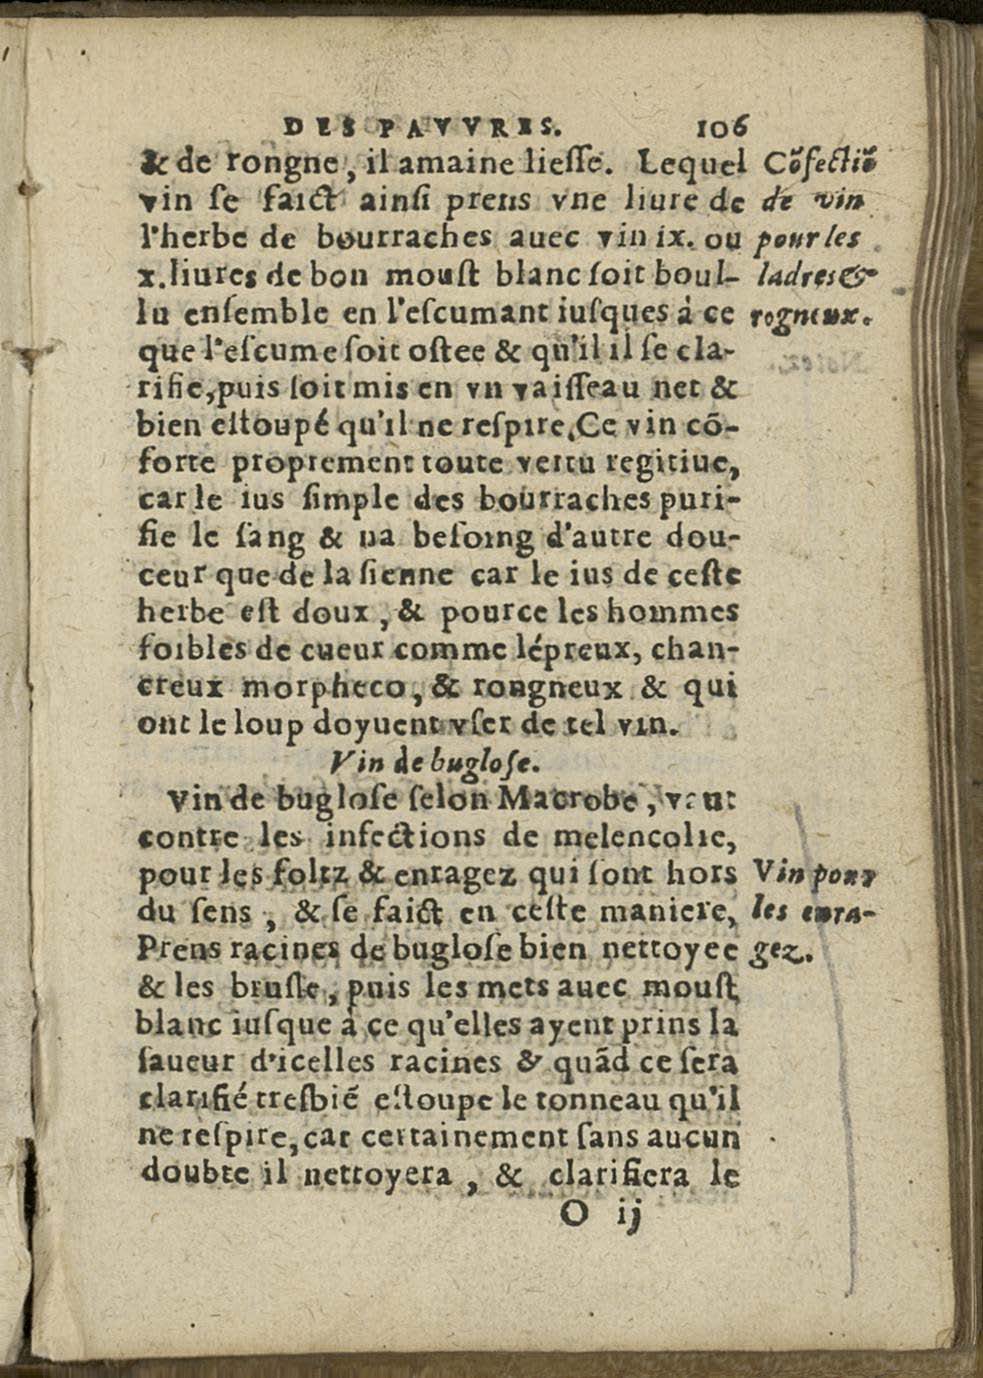 DES PAVVRES. 106
& de rongne, il amaine lieſſe. Lequel
vin ſe faict ainſi prens vne liure de
l'herbe de bourraches auec vin ix. ou
x. liures de bon mouſt blanc ſoit boul-
lu enſemble en l'eſcumant iuſques à ce
que l'eſcume ſoit oſtee & qu'il il ſe cla-
rifie, puis ſoit mis en vn vaiſſeau net &
bien eſtoupé qu'il ne reſpire. Ce vin cõ-
forte proprement toute vertu regitiue,
car le ius ſimple des bourraches puri-
fie le ſang & na beſoing d'autre dou-
ceur que de la ſienne car le ius de ceſte
herbe eſt doux, & pource les hommes
foibles de cueur comme lépreux, chan-
creux morpheco, & rongneux & qui
ont le loup doyuent vſer de tel vin.
Cõfectiõ
de vin
pour les
ladres &
rogneux.
Vin de bugloſe.
Vin de bugloſe ſelon Macrobe, vaut
contre les infections de melencolie,
pour les foltz & enragez qui ſont hors
du ſens, & ſe faict en ceſte maniere,
Prens racines de bugloſe bien nettoyee
& les bruſle, puis les mets auec mouſt
blanc iuſque à ce qu'elles ayent prins la
ſaueur d'icelles racines & quãd ce ſera
clarifié treſbiẽ eſtoupe le tonneau qu'il
ne reſpire, car certainement ſans aucun
doubte il nettoyera, & clarifiera le
Vin pour
les enra-
gez.
O ij